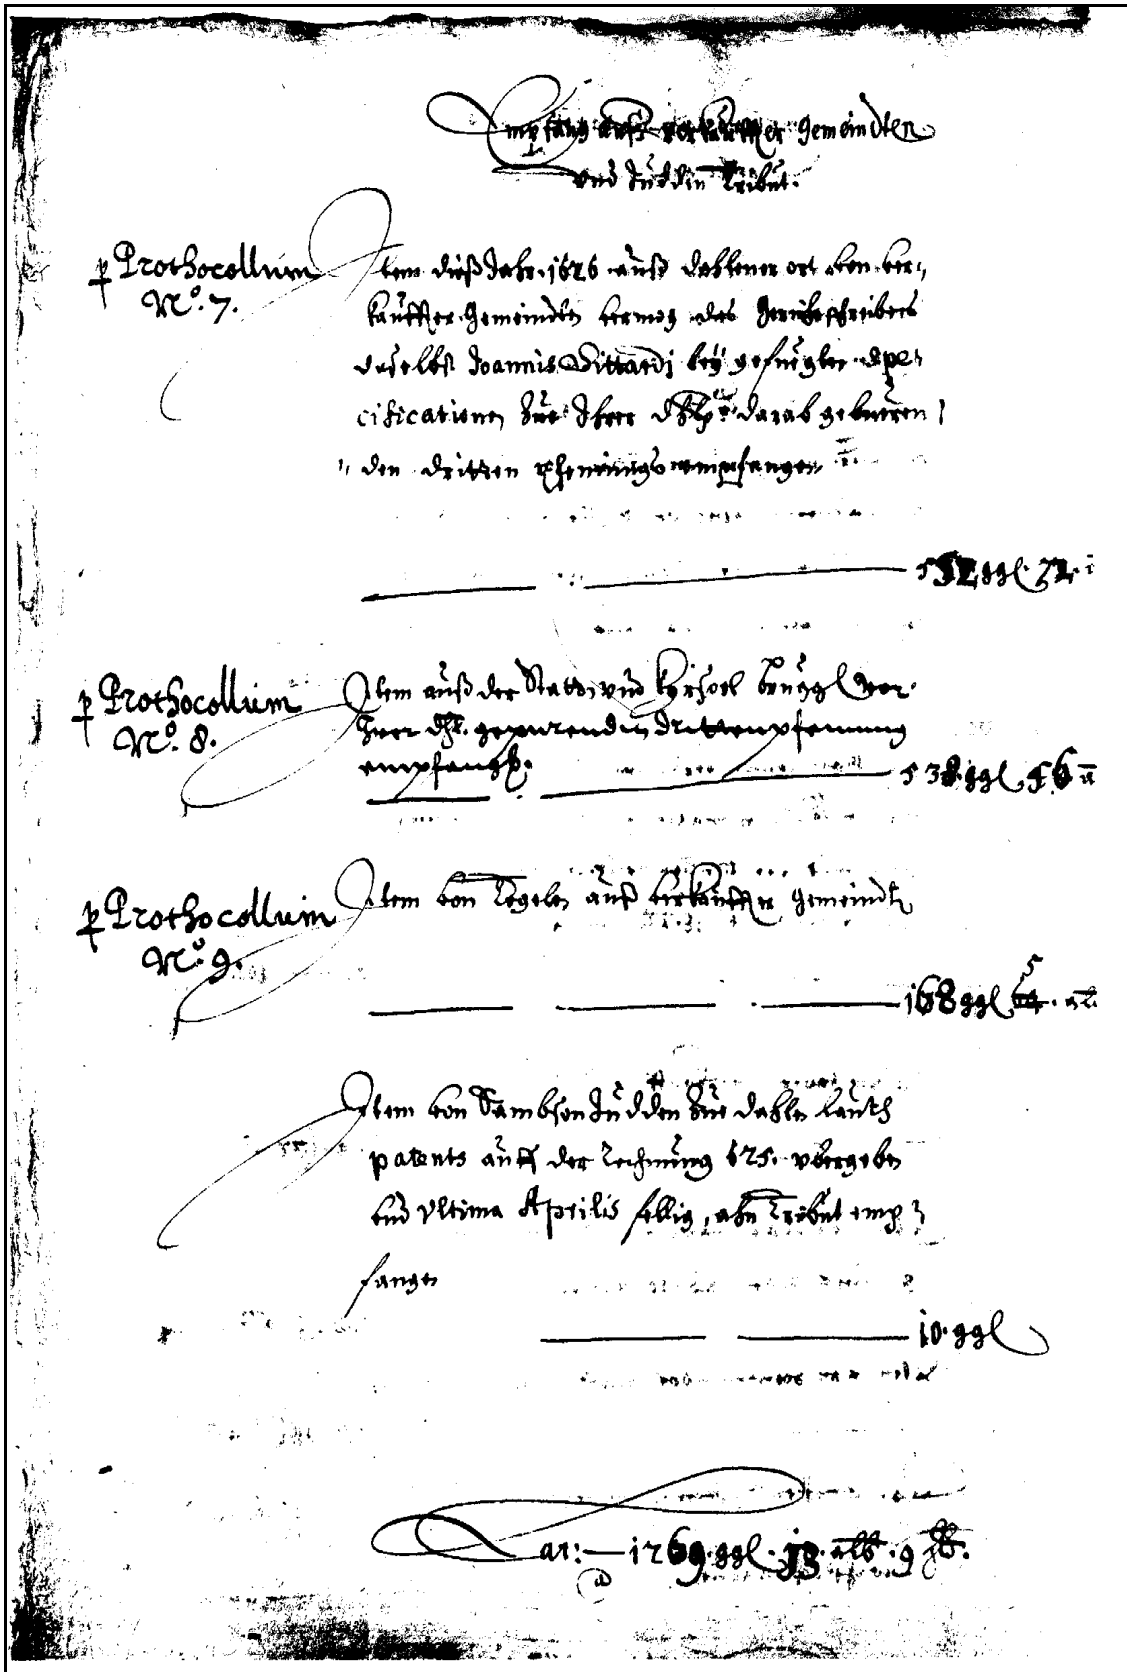 Empfang auß verkauffter Gemeindten
vnd Judden Tribut.
p Prothocollum
No. 7.
Item dieß Jahr 1626 auß dahlener ort von ver„
kauffter Gemeindten vermog des Gerichtschreibers
daselbst Joannis Sittardj beÿ gefuegter Spe„
cification, Zue Ihrer darab gebueren„
„den dritten Pfennings empfangen
ggl.
p Prothocollum
No. 8.
Item auß der Statt vnd Kyrspel Bruggl vor
Ihrer gepurenden dritten pfenning
empfangen.
538 ggl 56
p Prothocollum
No. 9.
Item von Tegelen auß verkauffter Gemeindte
168 ggl 5 alb
Item von Sambson Judden Zue dahlen lauth
patents auff der Rechnung 625. vbergeben
vnd Vltima Aprilis fellig, ahn Tribut emp„
fangen
10. ggl
Lat: — 1269. ggl. 13. alb. 9